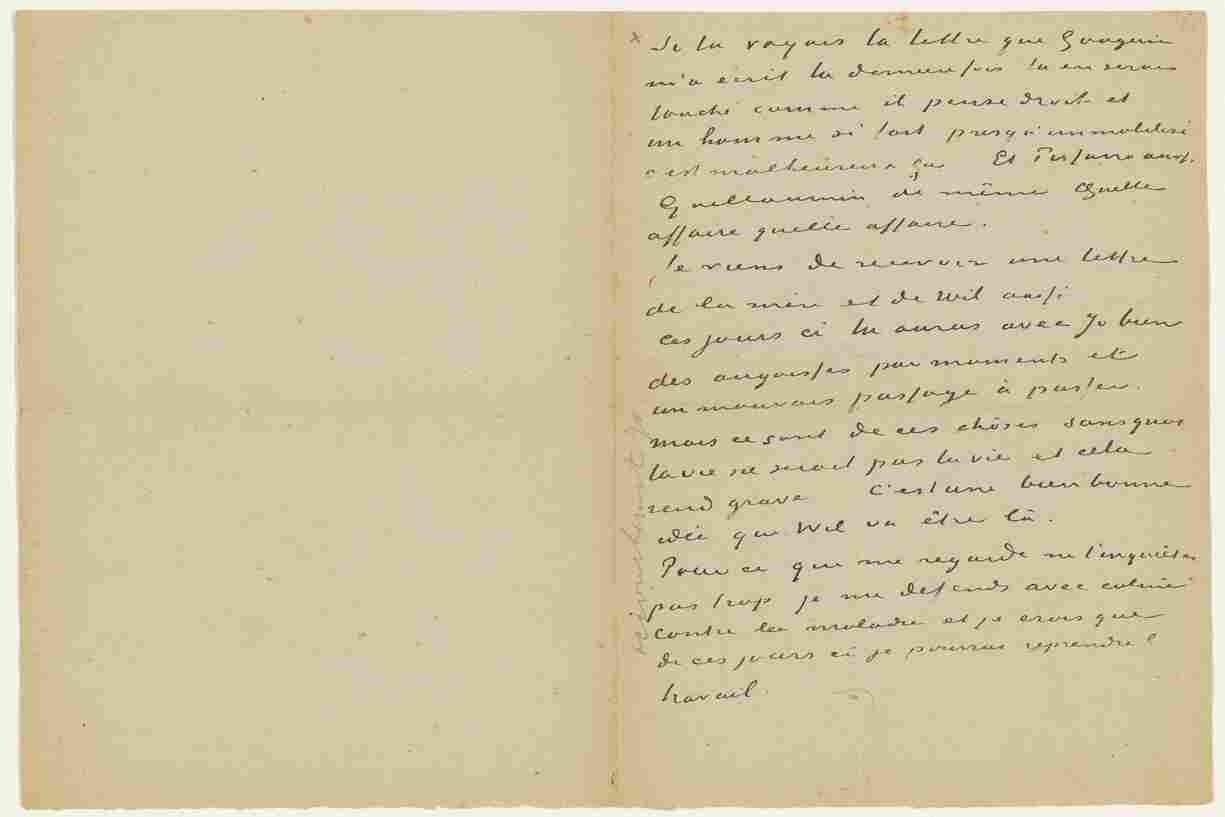 Si tu voyais la lettre que Gauguin
m'a écrit la dernière fois tu en serais
touché comme il pense droit et
un homme si fort presqu'immobilisé
c'est malheureux ça Et Pissarro aussi.
Guillaumin de même Quelle
affaire quelle affaire.
Je viens de recevoir une lettre
de la mère et de Wil aussi
ces jours ci tu auras avec Jo bien
des angoisses par moments et
un mauvais passage à passer.
mais ce sont de ces chôses sans quoi
la vie ne serait pas la vie et cela
rend grave C'est une bien bonne
idée que Wil va être là.
Pour ce que me regarde ne t'inquiètes
pas trop je me défends avec calme
contre la maladie et je crois que
de ces jours ci je pourrai reprendre l
travail.